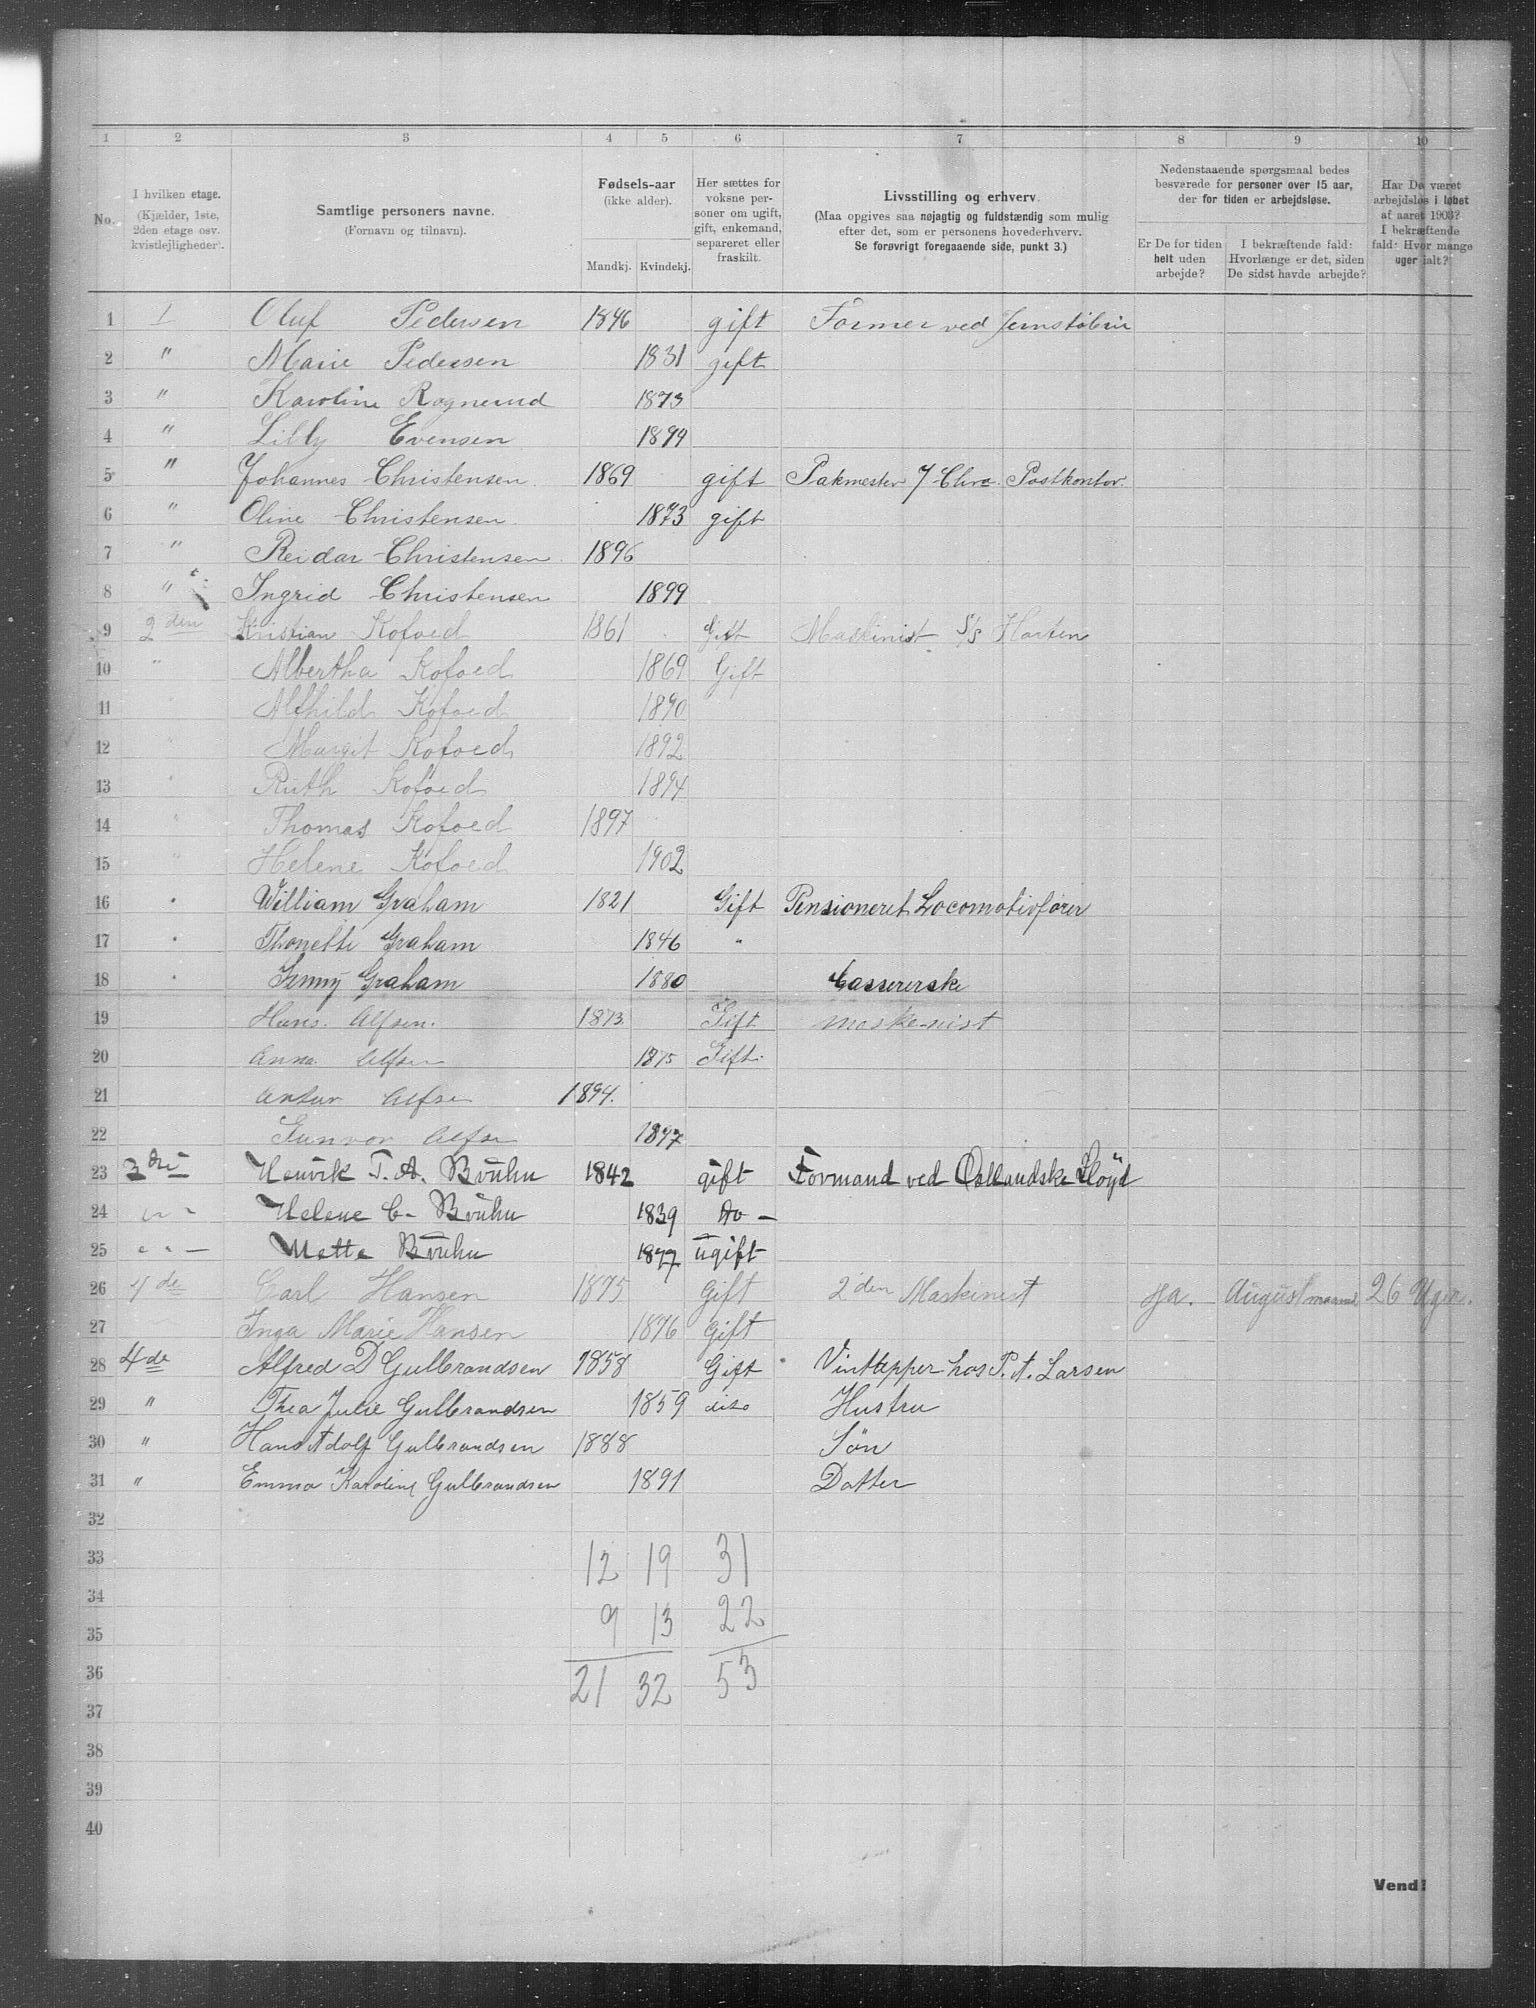 1 2 3 4 5 6 7 8 9 10
No.
I hvilken etage.
(Kjælder, 1ste,
2den etage osv.
kvistlejligheder).
Samtlige personers navne.
(Fornavn og tilnavn).
Fødsels-aar
(ikke alder).
Mandkj. Kvindekj.
Her sættes for
voksne per-
soner om ugift,
gift, enkemand,
separeret eller
fraskilt.
Livsstilling og erhverv.
(Maa opgives saa nøjagtig og fuldstændig som mulig
efter det, som er personens hovederhverv.
Se forøvrigt foregaaende side, punkt 3.)
Nedenstaaende spørgsmaal bedes
besværede for personer over 15 aar,
der for tiden er arbejdsløse.
Er De for tiden
helt uden
arbejde?
I bekræftende fald:
Hvorlænge er det, siden
De sidst havde arbejde?
Har De været
arbejdsløs i løbet
af aaret 1903?
I bekræftende
fald: Hvor mange
uger ialt?
1 1 Oluf Pedersen 1846 gift Former ved Jernstøberi
2 " Marie Pedersen 1831 gift
3 " Karoline Rognerud 1873
4 " Lilly Evensen 1899
5 " Johannes Christensen 1869 gift Pakmester Chra. Postkontor.
6 " Oline Christensen 1873 gift
7 " Reidar Christensen 1896
8 " Ingrid Christensen 1899
9 2den Kristian Kofoed 1861 Gift Maskinist S/S Horten
10 " Albertha Kofoed 1869 Gift
11 " Alfhild Kofoed 1890
12 " Margit Kofoed 1892
13 " Ruth Kofoed 1894
14 " Thomas Kofoed 1897
15 " Helene Kofoed 1902
16 " William Graham 1821 Gift Pensioneret Locomotivfører
17 " Thonette Graham 1846 "
18 " Jenny Graham 1880 Cassererske
19 Hans. Alfsen. 1873. Gift maskenist
20 Anna Alfsen 1875 Gift.
21 Artur Alfse 1894.
22 Gunvor Alfse 1897
23 3die Henrik T. A. Bruhn 1842 gift Formand ved Østlandske Lloyd
24 " - Helene C. Bruhn 1839 do -
25 " - Mette Bruhn 1877 ugift
26 4de Carl Hansen 1875 Gift 2den Maskinist Ja. August maaned 26 Uger.
27 Inga Marie Hansen 1876 Gift
28 4de Alfred D Gulbrandsen 1858 Gift Vintapper hos P. A. Larsen
29 " Thea Julie Gulbrandsen 1859 dito Hustru
30 " Hans Adolf Gulbrandsen 1888 Søn
31 " Emma Karoline Gulbrandsen 1891 Datter
32
33 12 19 31
34
35 9 13 22
36 21 32 53
37
38
39
40
Vend!